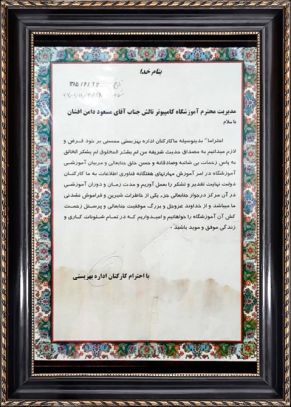 بنام خدا
مدیریت محترم آموزشگاه کامپیوتر تالش جناب آقای مسعود دامن افشان
با سلام
احتراماً بدینوسیله ماکارکنان اداره بهزیستی محسنی بر خود فرض و
لازم میدانیم به مصداق حدیث شریفه من لم یشکر المخلوق لم یشکر الخالق
به پاس زحمات بی شائبه وصادقانه و حسن خلق جنابعالی و مربیان آموزشی
آموزشگاه در امر آموزش مهارتهای هفتگانه فناوری اطلاعات به ما کارکنان
دولت نهایت تقدیر و تشکر را بعمل آوریم و مدت زمان و دوران آموزشی
در آن مرکز درجوار جنابعالی جزء یکی از خاطرات شیرین و فراموش نشدنی
ما میباشد و از خداوند عزوجل و بزرگ موفقیت جنابعالی و پرسنل زحمت
کش آن آموزشگاه را خواهانیم و امیدواریم که در تمام شئونات کاری و
زندگی موفق و موید باشید .
با احترام کارکنان اداره بهزیستی